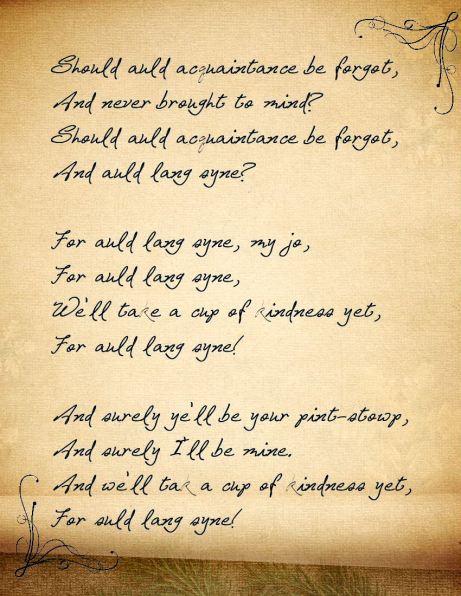 Should auld acquaintance be forgot,
And never brought to mind?
Should auld acquaintance be forgot,
And auld lang syne?
For auld lang syne, my jo,
For auld lang syne,
We'll take a cup of kindness yet,
For auld lang syne!
And surely ye'll be your pint-stowp,
And surely I'll be mine.
And we'll tak a cup of kindness yet,
For auld lang syne!